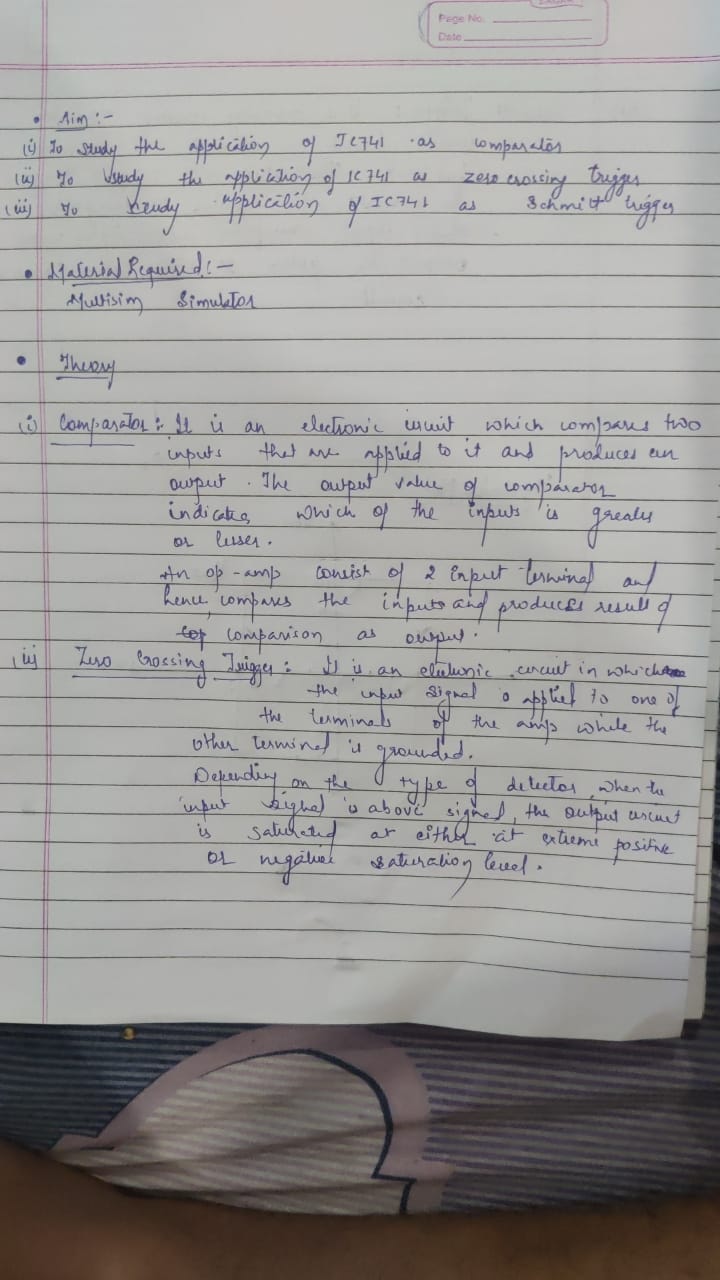 Page No.
Date
• Aim :-
(i) To study the application of IC741 as comparator
(ii) To study the application of IC 741 as zero crossing trigger
(iii) To study application of IC741 as Schmitt trigger
• Material Required :-
Multisim Simulator
• Theory
(i) Comparator : It is an electronic circuit which compares two
inputs that are applied to it and produces an
output. The output value of comparator
indicates which of the inputs is greater
or lesser.
An op-amp consist of 2 input terminal and
hence, compares the inputs and produces result of
comparison as output.
(ii) Zero Crossing Trigger : It is an electronic circuit in which
the input signal is applied to one of
the terminals of the amp while the
other terminal is grounded.
Depending on the type of detector, when the
input signal is above signal, the output circuit
is saturated at either at extreme positive
or negative saturation level.